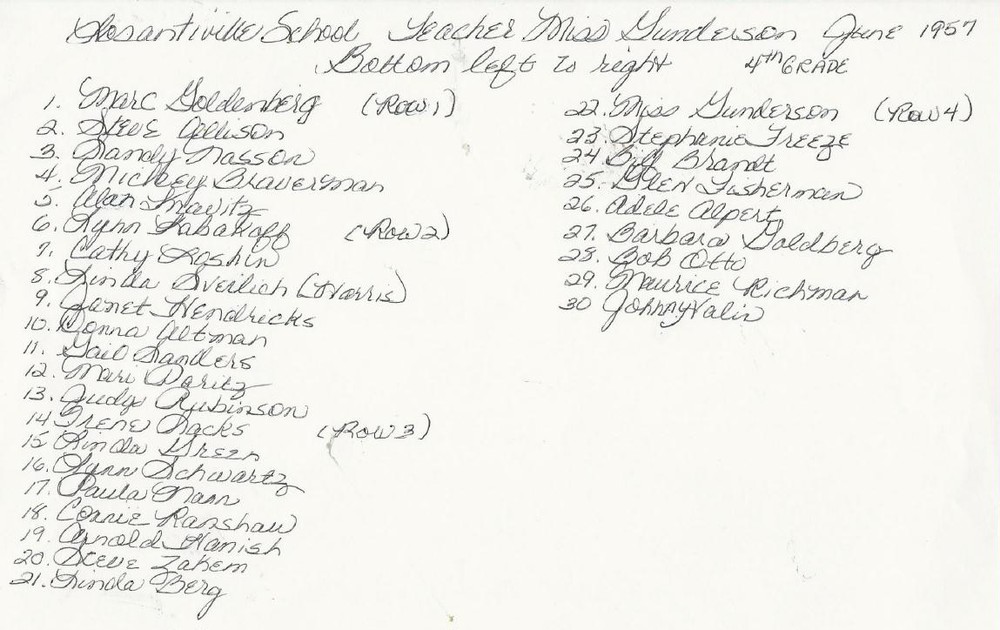 Losantiville School Teacher Miss Gunderson June 1957
Bottom left to right 4th GRADE
1. Marc Goldenberg (Row 1)
2. Steve Allison
3. Sandy Nasson
4. Mickey Braverman
5. Alan
6. Lynn Labakoff (Row 2)
7. Cathy Loshin
8. Linda Sveilich (Harris)
9. Janet Hendricks
10. Donna Altman
11. Gail Sanders
12. Mari
13. Judy Rubinson
14 Irene Sacks (Row 3)
15 Linda Green
16. Lynn Schwartz
17. Paula Mann
18. Connie Ranshaw
19. Arnold Hanish
20. Steve Zakem
21. Linda Berg
22. Miss Gunderson (Row 4)
23. Stephanie Freeze
24. Bill Brandt
25. Glen Fisherman
26. Adele Alpert
27. Barbara Goldberg
28. Bob Otto
29. Maurice Richman
30 Johnny Valin